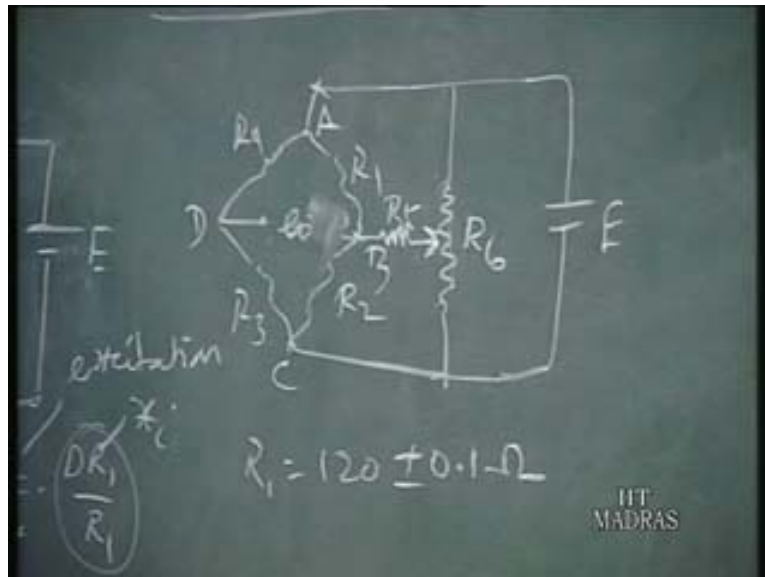 A
R4
R1
D
e0
B
R5
R6
E
R3
R2
C
E
excitation
DR1
R1
xi
R1 = 120 ± 0.1 Ω
IIT
MADRAS